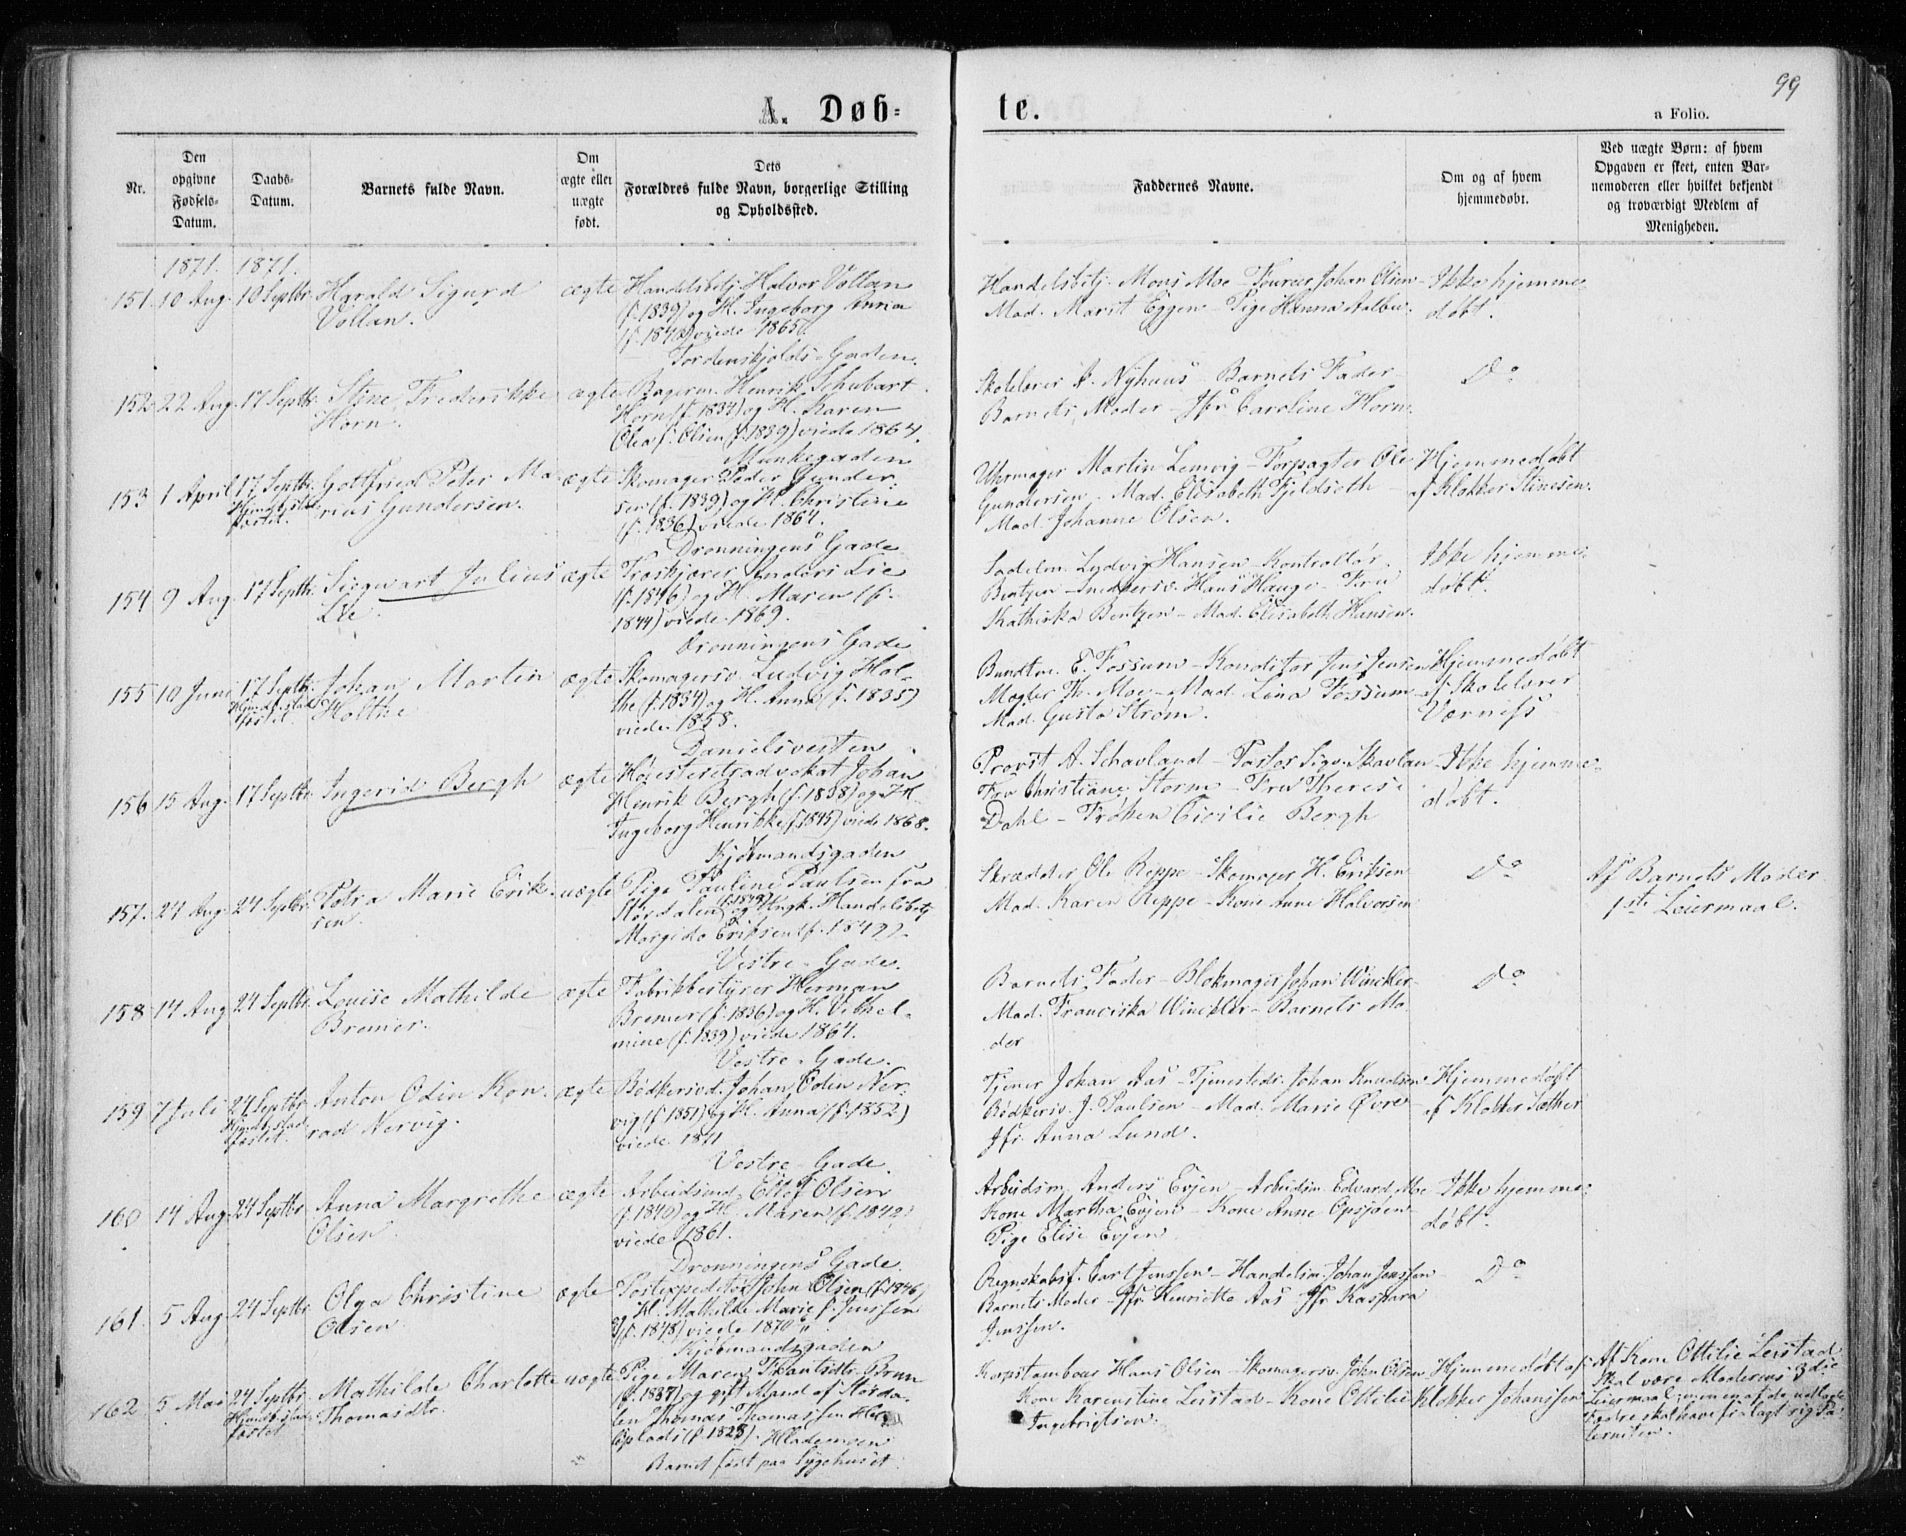 99
A. Døb-
te.
a Folio.
Nr.
Den opgivne Fødsels-Datum.
Daabs-Datum.
Barnets fulde Navn.
Om ægte eller uægte født.
Dets Forældres fulde Navn, borgerlige Stilling og Opholdssted.
Faddernes Navne.
Om og af hvem hjemmedøbt.
Ved uægte Børn: af hvem Opgaven er skeet, enten Barnemoderen eller hvilket bekjendt og troværdigt Medlem af Menigheden.
1871. 1871.
151. 10 Aug. 10 Septbr. Harald Sigurd
Vollan.
ægte
Handelsbetj. Halvor Vollan
(f. 1839) og H. Ingeborg Anna
viede 1865.
Tordenskjolds-Gaden.
Handelsbetj. Mons Moe - Fourer Johan Olsen
Mad. Marit Eggen - Pige Hanna Aalbu.
Ikke hjemme-
døbt.
152 22 Aug. 17 Septbr. Stine Frederikke
Horn.
ægte
Bagerm. Henrik Schubart
Horn (f. 1834) og H. Karen
Olea f. Olsen (f. 1839) viede 1864.
Munkegaden
Skolelærer P. Nyhuus - Barnets Fader -
Barnets Moder - Jfr Caroline Horn.
Do
153 1 April 17 Septbr. Gottfried Peter Ma-
rius Gundersen.
ægte
Skomager Peder Gunder-
sen (f. 1839) og H. Christine
(f. 1836) viede 1864.
Dronningens Gade
Uhrmager Martin Lemvig - Forpagter Ole
Gundersen - Mad. Elisabeth Fjeldseth -
Mad. Johanne Olsen.
Hjemmedøbt
af Klokker Stinesen.
154 9 Aug. 17 Septbr. Sigwart Julius
Lie.
ægte
Træskjærer Anders Lie
(f. 1846) og H. Maren (f.
1844) viede 1869.
Dronningens Gade
Sadelm. Ludvig Hansen - Kontrollør
Bentzen - Snedkersv. Hans Hauge - Fru
Kathinka Bentzen - Mad. Elisabeth Hansen.
Ikke hjemme-
døbt.
155 10 Juni 17 Septbr. Johan Martin
Holthe
ægte
Skomagersv. Ludvig Hol-
the (f. 1834) og H. Anna (f. 1835)
viede 1858.
Danielsvesten
Bundtm. E. Fossum - Konditor Jens Jensen
Mægler Th. Moe - Mad. Lina Fossum
Mad. Gusta Strøm.
Hjemmedøbt
af Skolelærer
Værness
156 15 Aug. 17 Septbr. Ingerid Bergh
ægte
Høiesteretsadvokat Johan
Henrik Bergh (f. 1838) og H.
Ingeborg Henrikke (f. 1845) viede 1868.
Kjøbmandsgaden
Provst A. Schavland - Pastor Sigv. Skavlan
Fru Christiane Storm - Fru Therese
Dahl - Frøken Cicilie Bergh
Ikke hjemme-
døbt.
157. 24 Aug. 24 Septbr. Petra Marie Erik-
sen.
uægte
Pige Pauline Paulsen fra
Størdalen og Ungk. Handelsbetj.
Margido Eriksen (f. 1849).
Vestre-Gade.
Skrædder Ole Reppe - Skomager H. Eriksen
Mad. Karen Reppe - Kone Anne Halvorsen
Do
Af Barnets Moder
1ste Leiermaal.
158 14 Aug. 24 Septbr. Louise Mathilde
Bremer.
ægte
Fabrikbestyrer Herman
Bremer (f. 1836) og H. Vilhel-
mine (f. 1839) viede 1864.
Vestre-Gade.
Barnets Fader - Blokmager Johan Winckler -
Mad. Franciska Winckler - Barnets Mo-
der
Do
159 7 Juli 24 Septbr. Anton Odin Kon-
rad Nervig.
ægte
Bødkersv. Johan Edin Ner-
vig (f. 1851) og H. Anna (f. 1852)
viede 1871
Vestre-Gade.
Tjener Johan Aas - Tjenestedr. Johan Knudsen
Bødkersv. J. Paulsen - Mad. Marie Øvre -
Jfr. Anna Lund.
Hjemmedøbt
af Klokker Sæther
160 14 Aug. 24 Septbr. Anna Margrethe
Olsen.
ægte
Arbeidsmd. Ellef Olsen
(f. 1840) og H. Maren (f. 1842)
viede 1861.
Dronningens Gade.
Arbeidsm. Anders Evjen - Arbeidsm. Edvard Moe
Kone Martha Evjen - Kone Anne Opsjøen
Pige Elise Evjen.
Ikke hjemme-
døbt.
161. 5 Aug. 24 Septbr. Olga Christine
Olsen.
ægte
Postexpeditør John Olsen (f. 1846)
og H. Mathilde Marie f. Jenssen
(f. 1848) viede 1870.
Kjøbmandsgaden
Regnskabsf. Carl Jenssen - Handelsm. Johan Jenssen
Barnets Moder - Jfr. Henriette Aas - Jfr Kaspara
Jenssen.
Do
162 5 Mai 24 Septbr. Mathilde Charlotte
Thomasdtr.
uægte
Pige Maren Frantsdtr. Brun
(f. 1837) og gift Mand af Størda-
len Thomas Thomassen
Oplads (f. 1828). Hlademoen
Barnet født paa Sygehuset.
Korpstambour Hans Olsen - Skomagersv. John Olsen
Kone Karenstine Leistad - Kone Ottilie
Ingebrigtsen.
Hjemmedøbt af
Klokker Johanssen
Af Kone Ottilie Leistad
Skal være Moderens 3die
Leiermaal